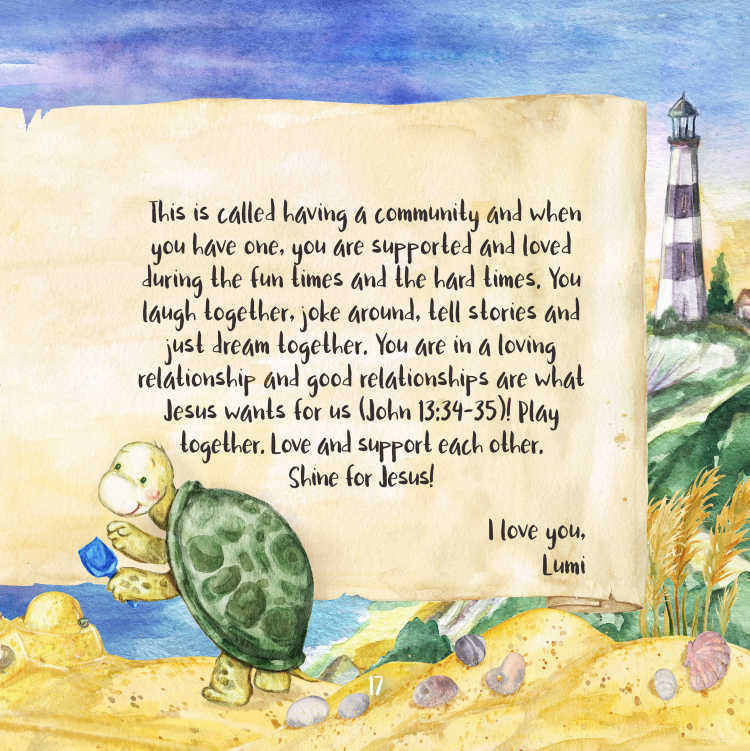 This is called having a community and when
you have one, you are supported and loved
during the fun times and the hard times. You
laugh together, joke around, tell stories and
just dream together. You are in a loving
relationship and good relationships are what
Jesus wants for us (John 13:34-35)! Play
together. Love and support each other.
Shine for Jesus!
I love you,
Lumi
17